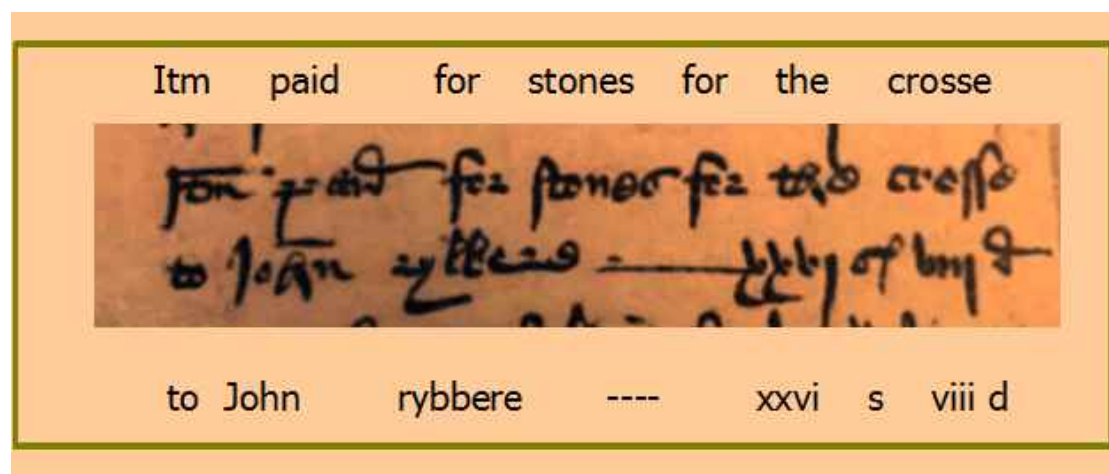 Itm paid for stones for the crosse
Itm paid for stones for the crosse
to John rybbere ---- xxvj s viij d
to John rybbere ---- xxvi s viii d